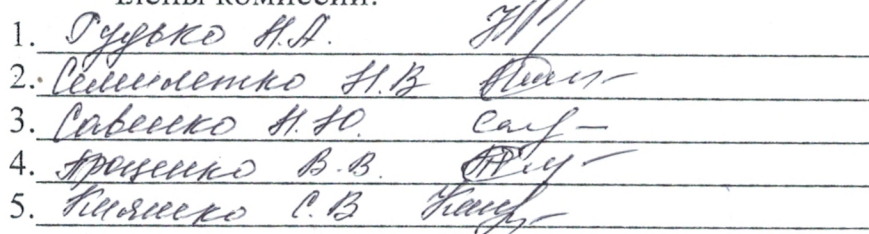 Члены комиссии:
1. Гудько Н.А.
2. Семилетко Н.В
3. Савенко Н.Ю.
4. Проценко В.В.
5. Кияшко С.В